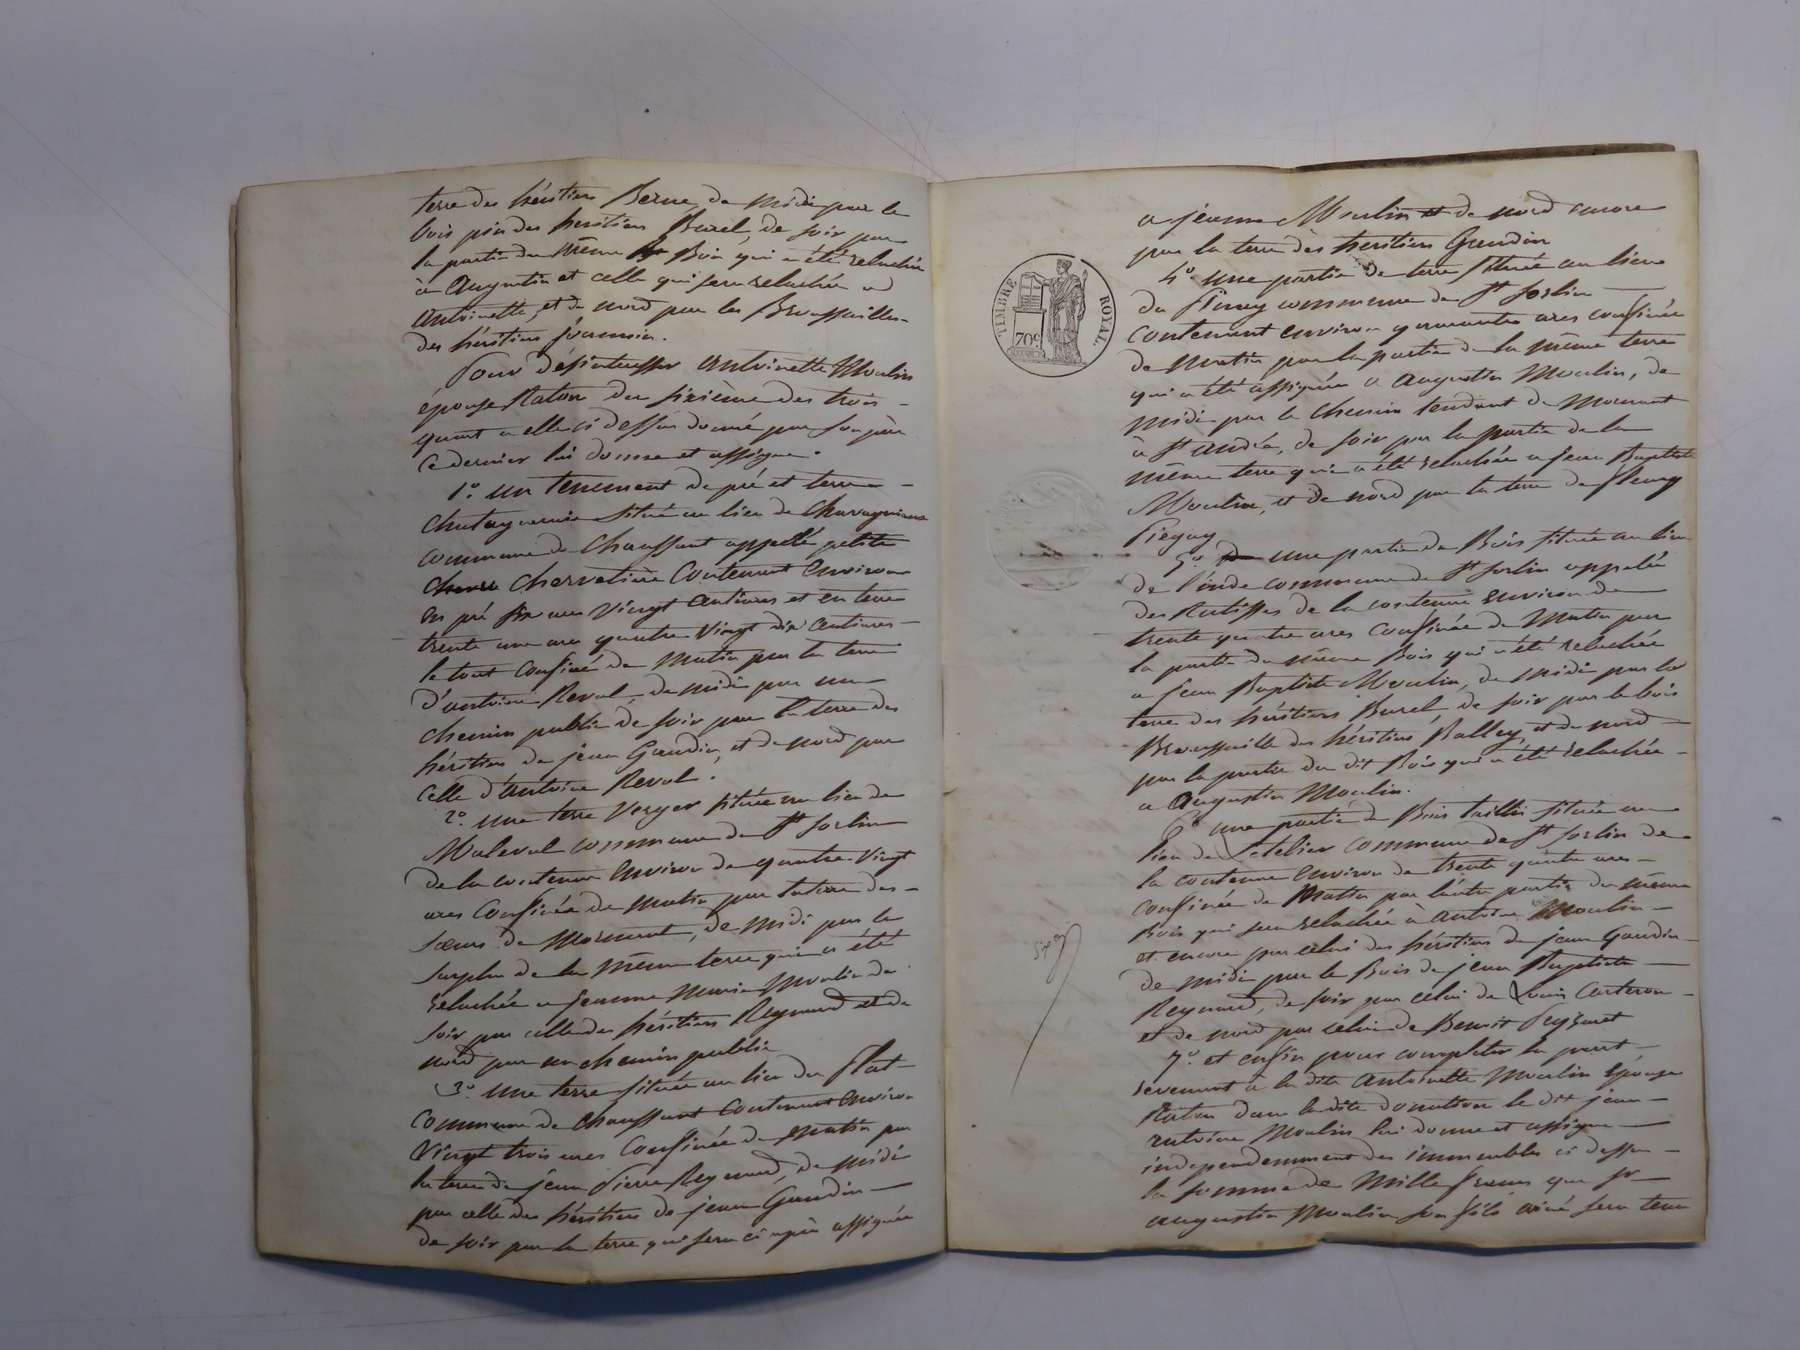 terre des héritiers Berne, de midi par le
bois pin des héritiers Burel, de soir par
la partie du même Bois qui a été relachée
à Augustin et celle qui sera relachée a
Antoinette, et de nord par les Broussailles
des héritiers Joannin.
Pour désintéresser Antoinette Moulin
épouse Raton du sixième des trois
quart a elle ci dessus donné par son père
ce dernier lui donne et assigne.
1.° un tenement de pré et terre
chataigneraie située au lieu de Chavagnieux
commune de Chaussant appellé petite
Chervetière Contenant environ
en pré six ares Vingt Centiares et en terre
trente un ares quatre Vingt dix Centiares
le tout Confiné de Matin par la terre
d'antoine Reval, de midi par un
chemin public de soir par la terre des
héritiers de jean Gaudin, et de nord par
celle d'antoine Reval.
2.° une terre Verger située au lieu de
Maleval commune de St Sorlin
de la contenue environ de quatre Vingt
ares Confinée de matin par la terre des
sœurs de Mornant, de midi par le
surplus de la même terre qui a été
relachée a Jeanne Marie Moulin de
soir par celle des héritiers Reynard et de
nord par un chemin public
3.° une terre située au lieu du Plat
commune de Chaussant Contenant environ
Vingt trois ares Confinée de matin par
la terre de jean Pierre Reynard, de midi
par celle des héritiers de jean Gaudin
de soir par la terre qui sera ci après assignée
a jeanne Moulin et de nord encore
par la terre des héritiers Gaudin
4.° une partie de terre située au lieu
du commune de St Sorlin
contenant environ quarante ares confinée
de matin par la partie de la même terre
qui a été assignée a Augustin Moulin, de
midi par le chemin tendant de Mornant
à St andéo, de soir par la partie de la
même terre qui a été relachée a jean Baptiste
Moulin, et de nord par la terre de fleury
Piegay
5.° une partie de Bois située au lieu
de l'inde commune de St Sorlin appelée
des Ratisses de la contenue environ de
trente quatre ares Confinée de Matin par
la partie du même Bois qui a été relachée
a jean Baptiste Moulin, de midi par la
terre des héritiers Burel, de soir par le bois
Broussaille des héritiers Balley, et de nord
par la partie du dit Bois qui a été relachée
a Augustin Moulin.
6.° une partie de Bois taillis située au
lieu de commune de St Sorlin de
la contenue environ de trente quatre ares
confinée de Matin par l'autre partie du même
Bois qui sera relachée à antoine Moulin
et encore par celui des héritiers de jean Gaudin
de midi par le Bois de jean Baptiste
Reynard, de soir par celui de Louis Carteron
et de nord par celui de Benoit
7.° et enfin pour completer la part
revenant à la dite Antoinette Moulin épouse
Raton dans la dite donation le dit jean
antoine Moulin lui donne et assigne
independemment des immeubles ci dessus
la somme de Mille francs que Sr
augustin Moulin son fils ainé sera tenu
TIMBRE ROYAL.
70c.